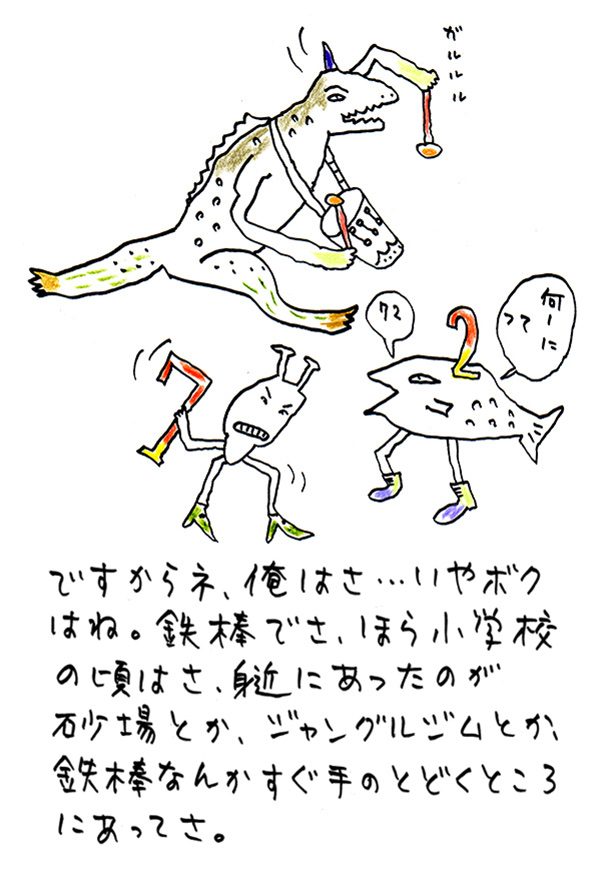 ガルルルル
72
何ーに
って
ですからネ、俺はさ…いやボク
はね。鉄棒でさ、ほら小学校
の頃はさ、身近にあったのが
砂場とか、ジャングルジムとか、
鉄棒なんかすぐ手のとどくところ
にあってさ。